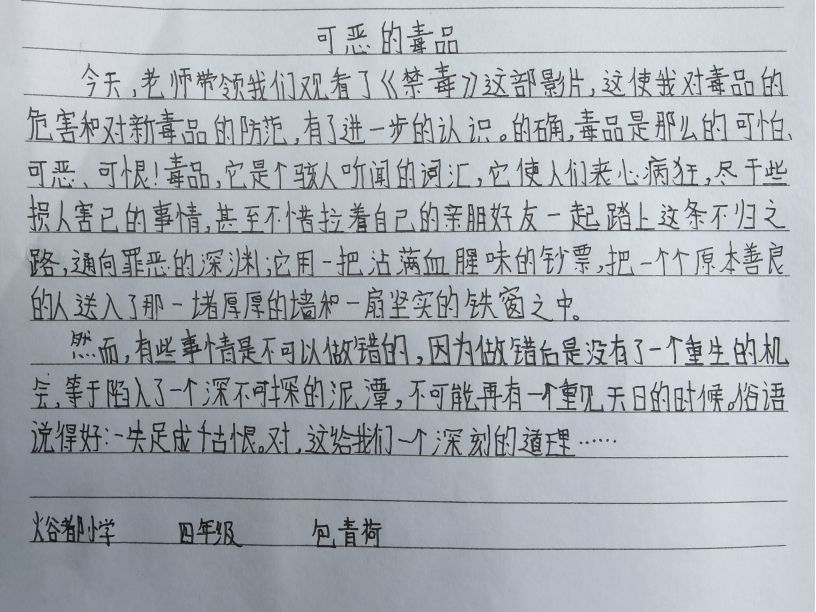 可恶的毒品
今天,老师带领我们观看了《禁毒》这部影片,这使我对毒品的
危害和对新毒品的防范,有了进一步的认识。的确,毒品是那么的可怕、
可恶、可恨!毒品,它是个骇人听闻的词汇,它使人们丧心病狂,尽干些
损人害己的事情,甚至不惜拉着自己的亲朋好友一起踏上这条不归之
路,通向罪恶的深渊;它用一把沾满血腥味的钞票,把一个个原本善良
的人送入了那一堵厚厚的墙和一扇坚实的铁窗之中。
然而,有些事情是不可以做错的,因为做错后是没有了一个重生的机
会,等于陷入了一个深不可探的泥潭,不可能再有一个重见天日的时候。俗语
说得好:一失足成千古恨。对,这给我们一个深刻的道理……
小学 四年级 包青荷